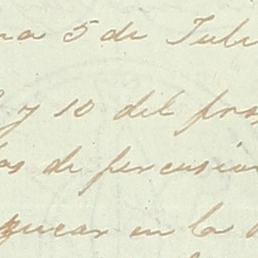 na 5 de Juli
y 10 del pro
as de percusion
zucar en la